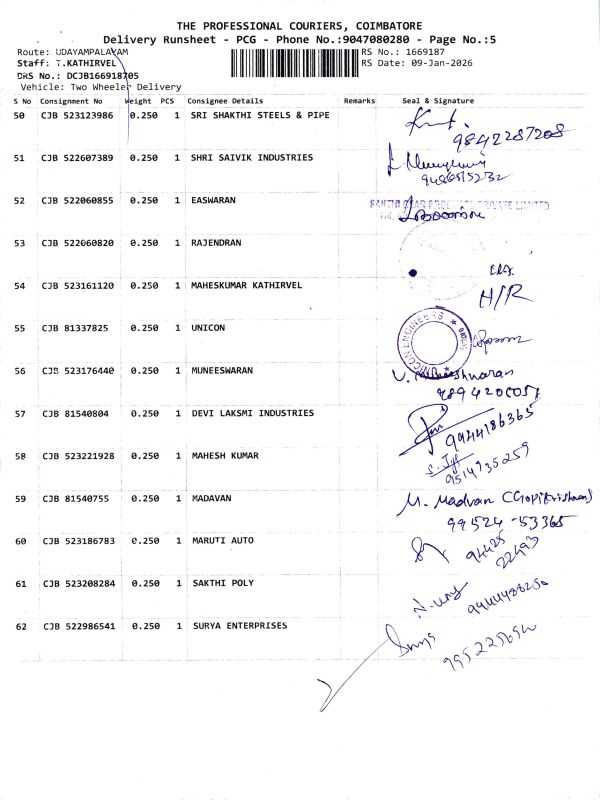 THE PROFESSIONAL COURIERS, COIMBATORE
Delivery Runsheet - PCG - Phone No.:9047080280 - Page No.:5
Route: UDAYAMPALAYAM
RS No.: 1669187
Staff: T.KATHIRVEL
RS Date: 09-Jan-2026
DRS No.: DCJB166918705
Vehicle: Two Wheeler Delivery
S No Consignment No Weight PCS Consignee Details Remarks Seal & Signature
50 CJB 523123986 0.250 1 SRI SHAKTHI STEELS & PIPE
9842287208
51 CJB 522607389 0.250 1 SHRI SAIVIK INDUSTRIES
9486515232
52 CJB 522060855 0.250 1 EASWARAN
PRIVATE LIMITED
53 CJB 522060820 0.250 1 RAJENDRAN
54 CJB 523161120 0.250 1 MAHESKUMAR KATHIRVEL
H/R
55 CJB 81337825 0.250 1 UNICON
UNICON ENGINEERS
56 CJB 523176440 0.250 1 MUNEESWARAN
V. Muneeshwaran
9894200051
57 CJB 81540804 0.250 1 DEVI LAKSMI INDUSTRIES
9944186365
58 CJB 523221928 0.250 1 MAHESH KUMAR
9514935259
59 CJB 81540755 0.250 1 MADAVAN
M. Madvan (Gopikrishnan)
99524-53365
60 CJB 523186783 0.250 1 MARUTI AUTO
94425
22493
61 CJB 523208284 0.250 1 SAKTHI POLY
62 CJB 522986541 0.250 1 SURYA ENTERPRISES